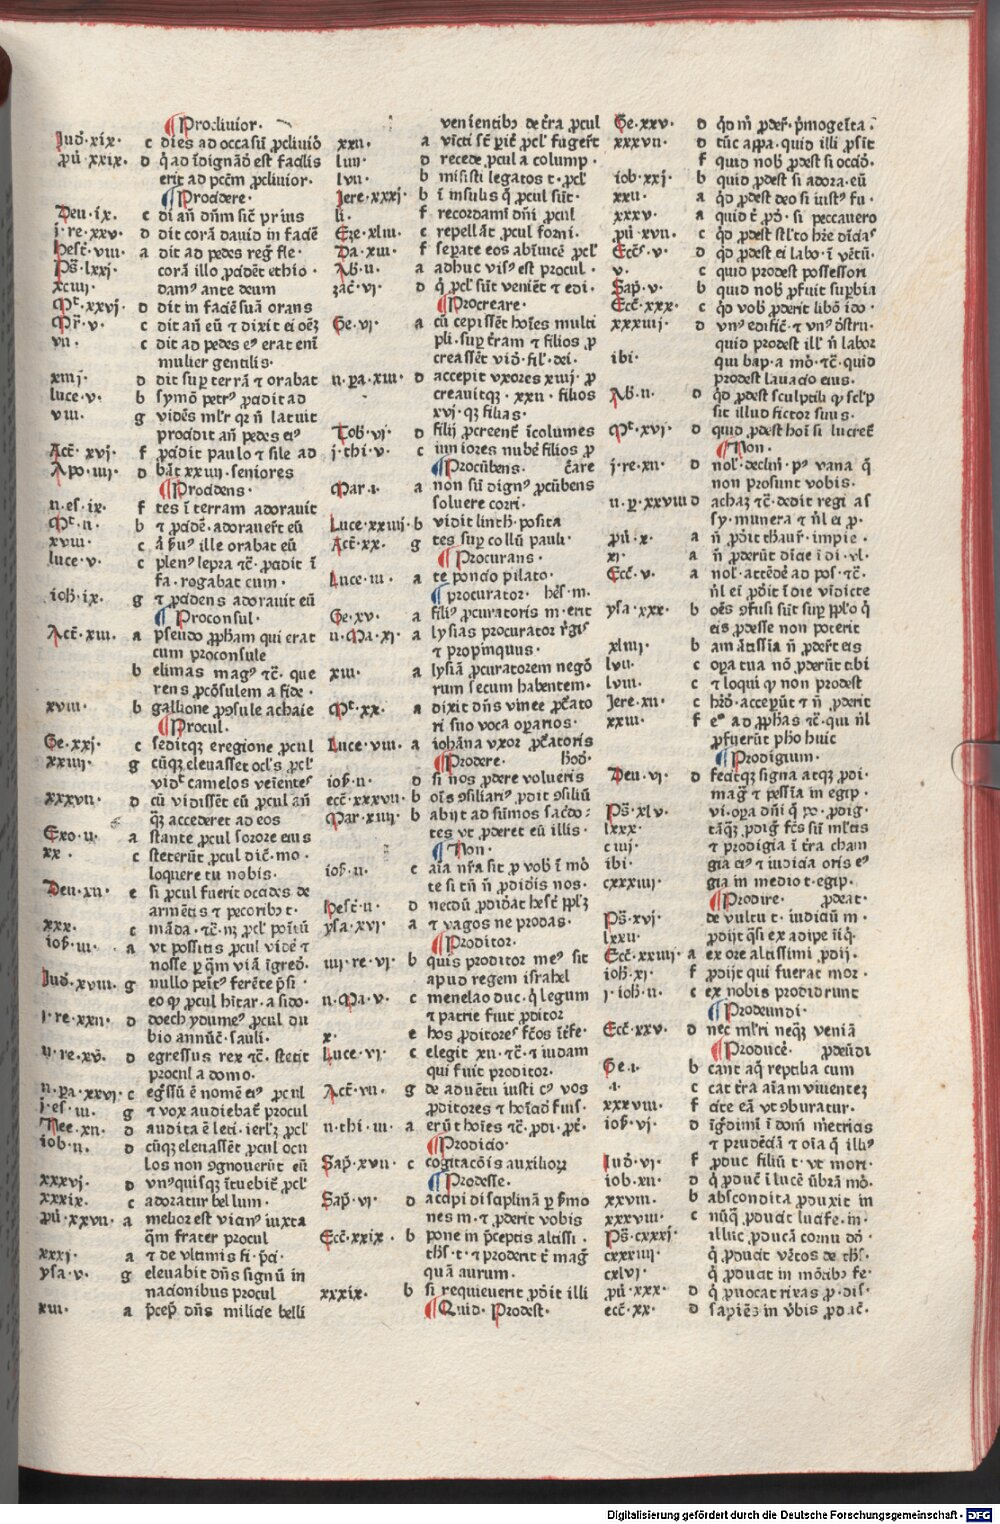 ¶Procliuior.
Jud̛.xix. c dies ad occasū ꝓcliuiō
ꝓū.xxix. d q̄ ad īdignādō est facilis
erit ad pctm̄ ꝓcliuior.
¶Procidere.
Deu.ix. c di añ dn̄m sic̄ prius
j.re.xxv. d dit corā dauid in faciē
Hest̄.viii. a dit ad pedes reḡ fle.
Ps̄.lxxj. corā illo ꝓcidēt ethio.
xciiij. damꝰ ante deum
Mt̄.xxvj. d dit in faciē suā orans
Mr̄.v. c dit añ eū ⁊ dixit ei oēȝ
vii. c dit ad pedes eꝰ erat eni
mulier gentilis.
xiiij. d dit suꝑ terrā ⁊ orabat
luce.v. b symō petrꝰ ꝓcidit ad
viii. g vidēs ml̄r qꝛ ñ latuit
procidit añ pedes eiꝰ
Act̄.xvj. f ꝓcidit paulo ⁊ sile ad
Apo.iiij. d bāt xxiiij.seniores
¶Procidens.
n.es.ix. f tes ī terram adorauit
Mt̄.ii. b ⁊ ꝓcidē.adorauer̄t eū
xviii. c
luce.v. c plenꝰ lepra ⁊c̄.ꝓcidit ī
fa.rogabat eum.
ioh̄.ix. g ⁊ ꝓcidens adorauit eū
¶Proconsul.
Act̄.xiii. a pseudo ꝓpham qui erat
cum proconsule
b elimas magꝰ ⁊c̄.que
rens ꝓcōsulem a fide.
xviii. b gallione ꝓꝯsule achaie
¶Procul.
Ge.xxj. c seditqȝ eregione ꝓcul
xxiiij. g cūqȝ eleuasset ocl̄s ꝓcl̄
vidꝫ camelos veiētes
xxxvii. d cū vidissēt eū ꝓcul añ
qȝ accederet ad eos
Exo.ii. a stante ꝓcul sorore eius
xx. c steterūt ꝓcul dic̄.mo.
loquere tu nobis.
Deu.xii. e si ꝓcul fuerit occides de
armētis ⁊ pecoribꝫ t.
xxx. c
ioh̄.iii. a vt possitis ꝓcul vidē ⁊
nosse ꝑ qm̄ viā īgred̄.
Jud̄.xviii. g nullo
eo qꝫ ꝓcul hītar.a sido.
j.re.xxii. d doech ydumeꝰ ꝓcul du
bio annūc̄.sauli.
ij.re.xv. d egressus rex ⁊c̄.stetit
procul a domo.
n.pa.xxvj. c egr̄ssū ē nomē eiꝰ ꝓcul
j.es.iii. g ⁊ vox audiebat̄ procul
Nee.xii. d audita ē leti.ierl̄ȝ ꝓcl̄
iob.ii. d cūqȝ eleuassēt ꝓcul ocu
los non ꝯgnouerūt eū
xxxvj. d vnꝰquisqȝ ītuebit̄ ꝓcl̄
xxxix. c adoratur bellum.
ꝓū.xxvii. a melior est vicinꝰ iuxta
qm̄ frater procul
xxxj. a ⁊ de vltimis fi.p̄ci.
ysa.v. g eleuabit dn̄s signū in
nacionibus procul
xiii. a p̄cep̄ dn̄s milicie belli
venientibꝫ de t̄ra ꝓcul
xxii. a vīcti sc̄ ꝑit̄ ꝓcl̄ fuger̄t
lvii. d recede ꝓcul a colump.
lvii. b misisti legatos t.ꝓcl̄
Jere.xxxj. b ī insulis q̄ ꝓcul sūt.
li. f recordami dn̄i ꝓcul
Eze.xliii. c repellāt ꝓcul forni.
Da.xiii. f seꝑate eos abīuicē ꝓcl̄
Ab̄.ii. a adhuc visꝰ est procul.
zac̄.vi. d q̄ ꝓcl̄ sūt veniēt ⁊ edi.
¶Procreare.
Ge.vi. a cū cepissēt hoīes multi
pli.suꝑ t̄ram ⁊ filios ꝓ
creassēt vid̄.fil̄.dei.
n.pa.xiii. d accepit vxores xiiij ꝓ
creauitqȝ.xxii.filios
xvj.qȝ filias.
Tob̄.vj. d filij ꝓcreent̄ īcolumes
j.thi.v. c iuniores nubē filios ꝓ
¶Procūbens. c̄are
Mar.i. a non sū dignꝰ ꝓcūbens
soluere corri.
Luce.xxiiij. b vidit linth̄.posita
Act̄.xx. g tes suꝑ collū pauli.
¶Procurans.
Luce.iii. a te poncio pilato.
¶procurator. hēs̄.m.
Ge.xv. a filiꝰ ꝓcuratoris m.erit
n.Ma.xj. a lysias procurator r̄gis
⁊ propinquus.
xiii. a lysiā ꝓcuratorem negō
rum secum habentem.
Mt̄.xx. a dixit dn̄s vinee ꝓcāto
ri suo voca oꝑarios.
Luce.viii. a iohāna vxor ꝓcātoris
¶Prodere. hod̄.
ioh̄.ii. d si nos ꝓdere volueris
ecc̄.xxxvii. b oīs ꝯsiliariꝰ ꝓdit ꝯsiliū
Mar.xiiij. b abijt ad sūmos sacdo=
tes vt ꝓderet eū illis.
¶Non.
ioh̄.ii. c aīa nr̄a sit ꝓ vob̄ ī mō
te si tn̄ ñ ꝓdidīs nos.
Hest̄.ii. d necdū ꝓdidāt hest̄ ꝓpl̄ȝ
ysa.xvj. a ⁊ vagos ne prodas.
¶Proditor.
iiij.re.vj. b quis proditor meꝰ sit
apud regem israhel
n.Ma.v. c menelao duc.q̄ legum
⁊ patrie fiut ꝓditor
x. e hos ꝓditores fc̄os īt̄fe.
Luce.vj. c elegit xii.⁊c̄.⁊ iudam
qui fuit proditor.
Act̄.vii. g de aduētu iusti cꝰ vos
ꝓditores ⁊ hoīcid̄ fuis.
n.thi.iii. a erūt hoīes ⁊c̄.ꝓdi.ꝓt̄.
¶Prodicio.
Sap̄.xvii. c cogitacōis auxilioꝝ
¶Prodesse.
Sap̄.vj. d accipi disciplinā ꝑ ẜmo
nes m.⁊ ꝓderit vobis
Ecc̄.xxix. b pone in p̄ceptis altissi.
ths̄.t.⁊ proderit t̄ mag̃
quā aurum.
xxxix. b si requieuerit ꝓdit illi
¶Quid.Prodest.
Ge.xxv. d
xxxvii. d tūc aṗpa.quid illi ꝓsit
f quid nob̄ ꝓdest si occid̄.
iob.xxj. b quid ꝓdest si adora.eū
xxii. a qd̄ ꝓdest deo si iustꝰ fu.
xxxv. a quid t̄ ꝓd̄.si peccauero
ꝓū.xvii. c qd̄ ꝓdest stl̄to hr̄e dicias
Ecc̄s.v. d qd̄ ꝓdest ei labo.ī vētū.
v. c quid prodest possessori
Sap̄.v. b quid nob̄ ꝓfuit suꝑbia
Ecc̄.xxx. c qd̄ vob̄ ꝓderit libō ido.
xxxiiij. d vnꝰ edific̄.⁊ vnꝰ d̄stru.
quid prodest ill̄ ñ labor
ibi. qui bap.a mō.⁊c̄.quid
prodest lauacio eius.
Ab̄.ii. d qd̄ ꝓdest sculptili qꝫ scl̄p
sit illud fictor suus.
Mt̄.xvj. d quid ꝓdest hoī si lucret̄
¶Non.
j.re.xii. d nol̄.declin̄.pꝰ vana q̄
non prosunt vobis.
n.ꝑ.xxviii d achaz ⁊c̄.dedit regi as
sy.munera ⁊ n̄l ei ꝓ.
ꝓū.x. a ñ ꝓd̄it thaur̄.impie.
xj. a ñ ꝓderūt dīcie ī di.vl̄.
Ecc̄.v. a nol̄.attēdē ad pos̄.⁊c̄.
n̄l ei ꝓd̄it ī die vīdicte
ysa.xxx. b oēs ꝯfusi sūt suꝑ ꝓpl̄o q̄
eis ꝓdesse non poterit
xliiij. b amātissīa ñ ꝓder̄t eis
lvii. c oꝑa tua nō ꝓderūt tibi
lviii. c ⁊ loqui qꝫ non prodest
Jere.xii. c hr̄d̄.acceꝑūt ⁊ ñ ꝓderit
xxiii. f eꝰ ad ꝓphās ⁊c̄.qui n̄l
ꝓfuerūt pho huic
¶Prodigium.
Deu.vj. d fecitqȝ signa atqȝ ꝓdi.
mag̃ ⁊ pessīa in egip.
Ps̄.xlv. vi.oꝑa dn̄i q̄ ꝓo.ꝓdig.
lxxx. tāqȝ ꝓdig̃ fc̄s sū ml̄tis
ciiij. ⁊ prodigia ī t̄ra cham
ibi. gia eiꝰ ⁊ iudicia oris eꝰ
cxxxiiij. gia in medio t.egip.
¶Prodire. ꝓdeat.
Ps̄.xvj. de vultu t.iudiciū m.
lxxii. ꝓdijt q̄si ex adipe iīq̄.
Ecc̄.xxiiij. a ex ore altissimi ꝓdij.
ioh̄.xj. f ꝓdijt qui fuerat mor.
j.ioh̄.ii. c ex nobis prodidrunt
¶Prodeundi.
Ecc̄.xxv. d nec ml̄ri neqȝ veniā
¶Producē. ꝓdeūdi
Ge.i. b cant aq̄ reptilia cum
.i. c cat t̄ra aīam viuentez
xxxviii. f cite eā vt ꝯburatur.
iob̄.vj. d
⁊ prudēciā ⁊ oīa q̄ illiꝰ
Jud̄.vj. f ꝓduc filiū t.vt mori.
iob.xii. d q̄ ꝓduc̄ ī lucē ūbrā mō.
xxviii. b abscondita ꝓduxit in
xxxviii. c nūq̄ ꝓducit lucife.in.
Ps̄.cxxxj. illuic ꝓducā cornu dd̄.
cxxxiiij. q̄ ꝓducit vētos de ths̄.
cxlvj. q̄ ꝓducit in mōtibꝫ fe.
ꝓū.xxx. d q̄ ꝓuocat rixas ꝓ.dis.
ecc̄.xx. d sapiēs in v̄bis ꝓdāc̄.
Digitalisierung gefördert durch die Deutsche Forschungsgemeinschaft - DFG